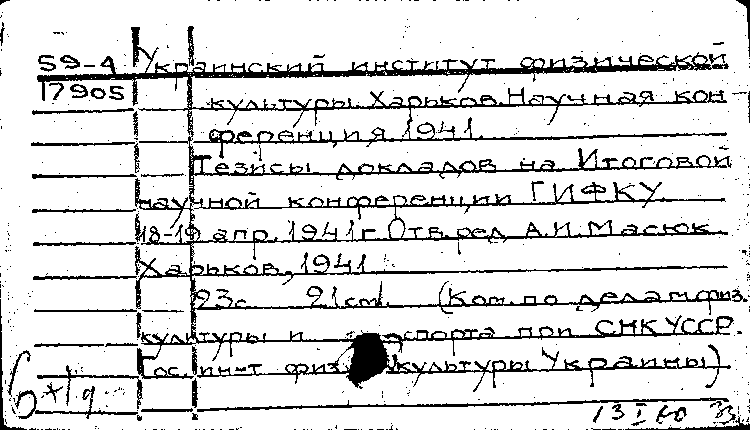 59-4 Украинский институт физической
17905 культуры. Харьков. Научная кон-
ференция. 1941.
Тезисы докладов на Итоговой
научной конференции ГИФКУ.
18-19 апр. 1941 г. Отв. ред. А.И. Масюк
Харьков, 1941.
23 с. 21 см. (Ком. по делам физ.
культуры и спорта при СНК УССР.
Гос. ин-т физ. культуры Украины)
13 I 60